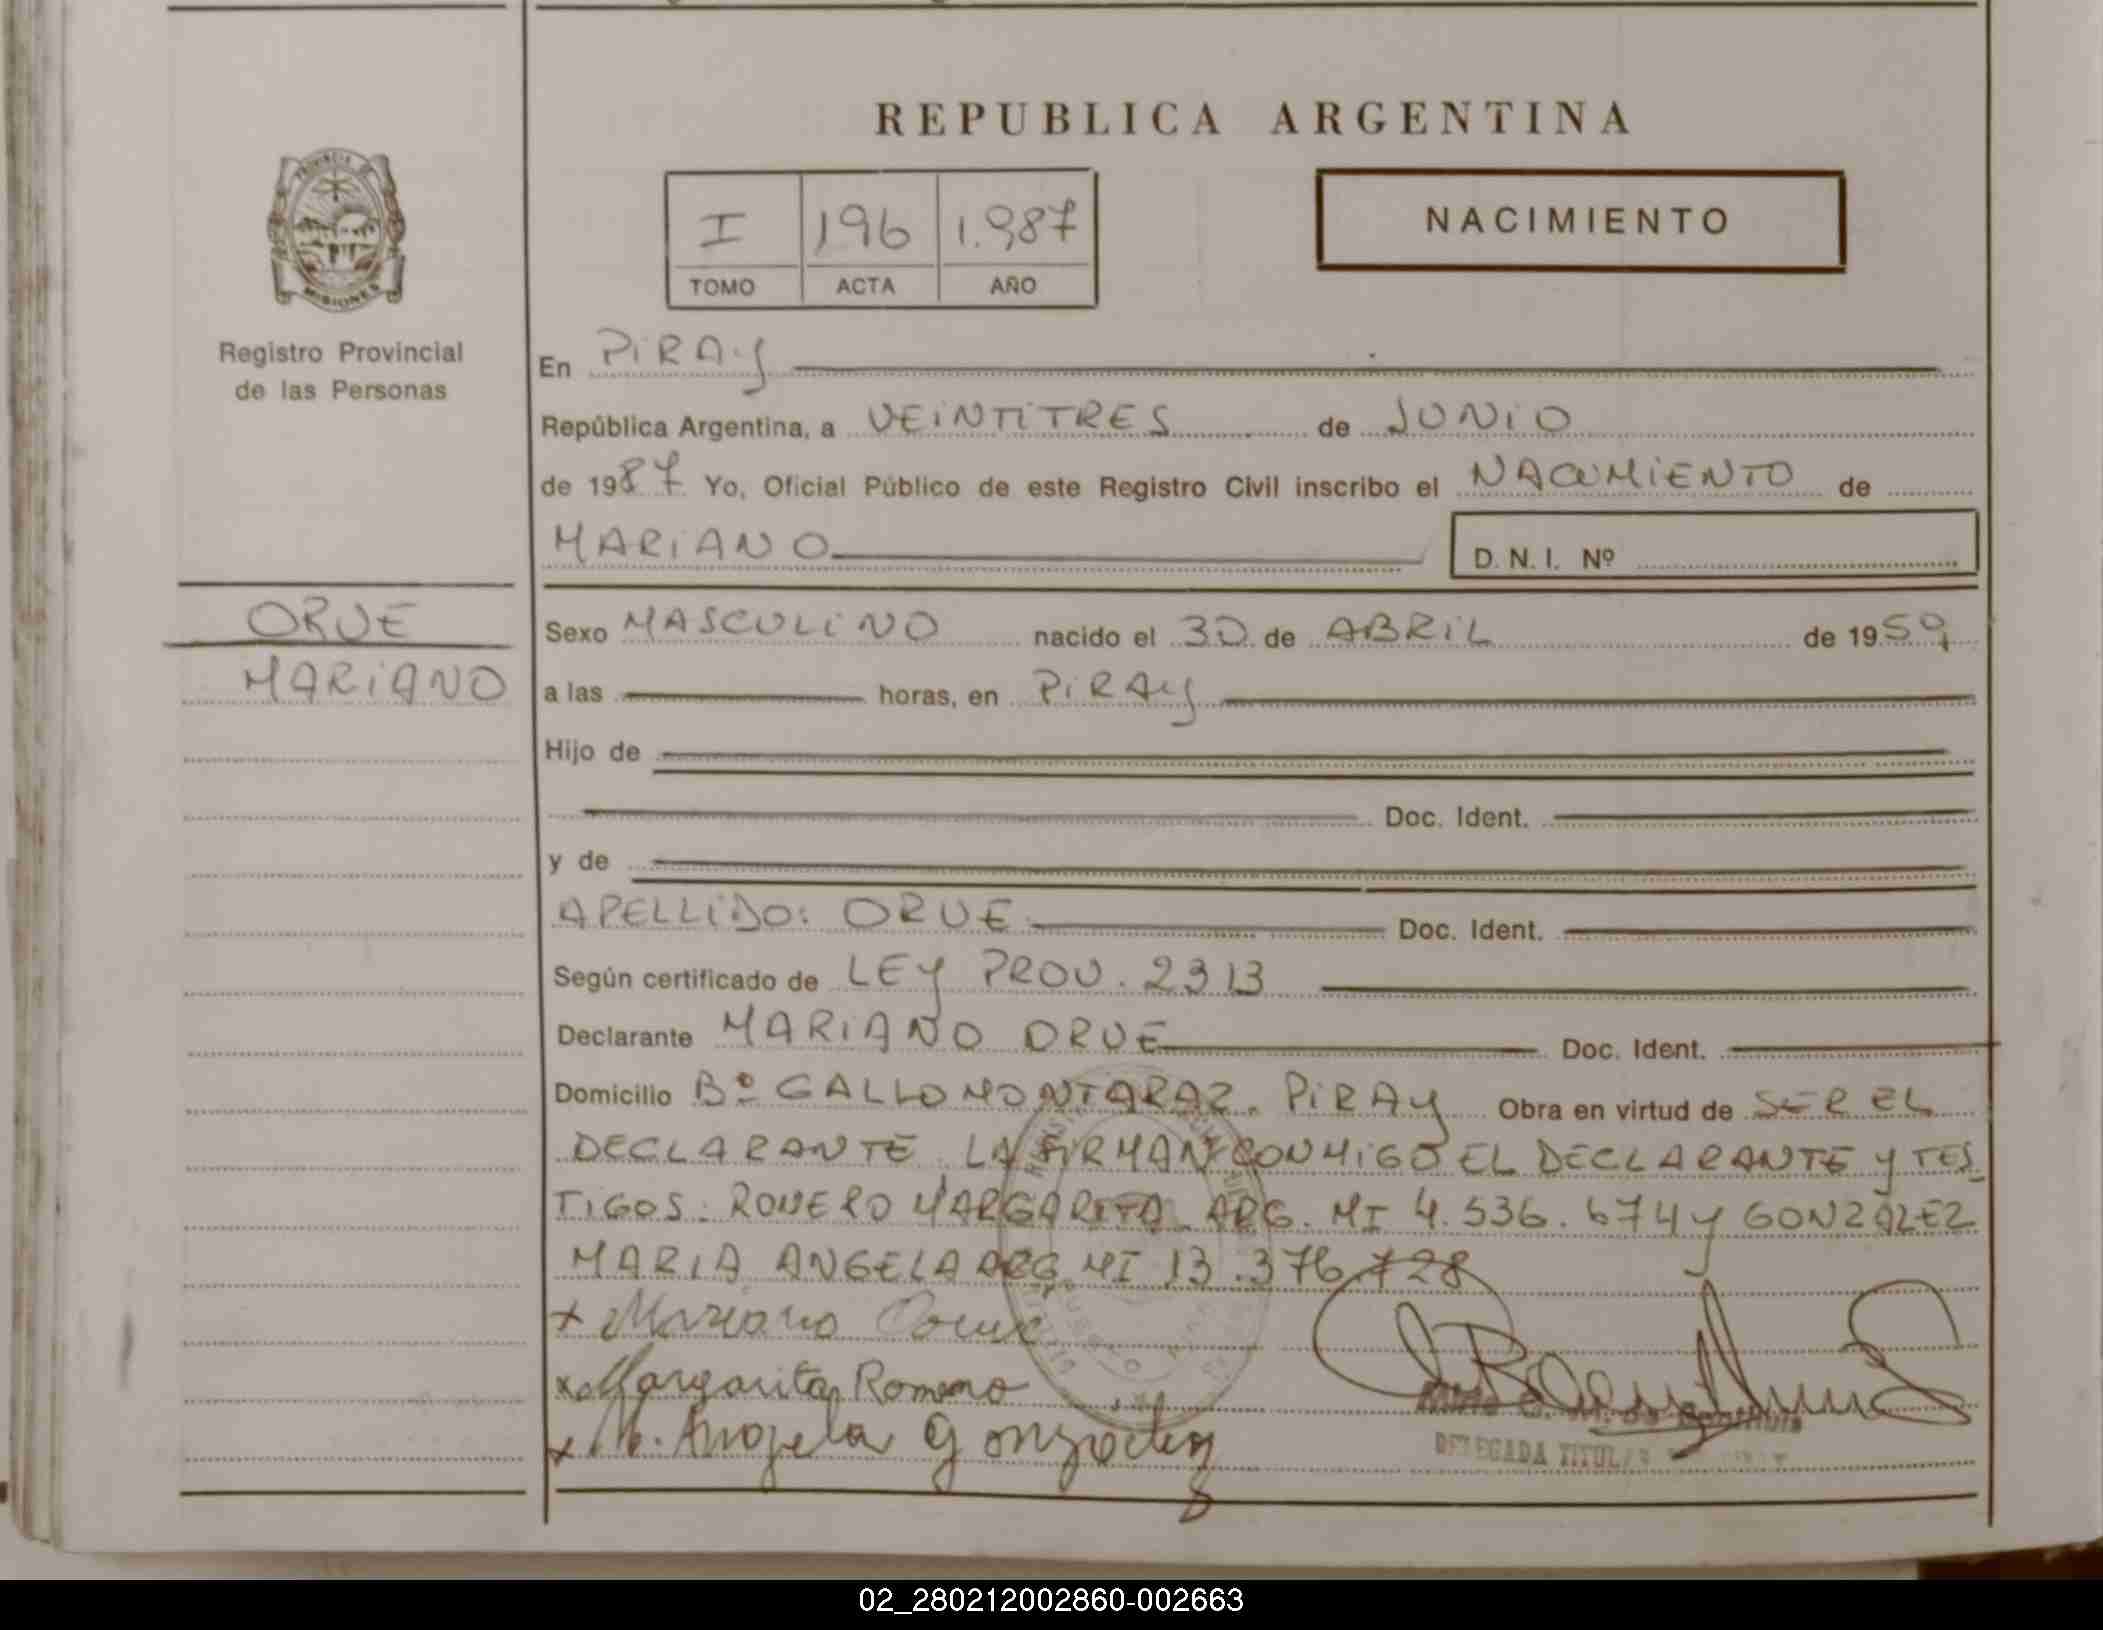 REPUBLICA ARGENTINA
PROVINCIA DE
MISIONES
Registro Provincial
de las Personas
I 196 1.987
TOMO ACTA AÑO
NACIMIENTO
En PIRAY
República Argentina, a VEINTITRES de JUNIO
de 1987 Yo, Oficial Público de este Registro Civil inscribo el NACIMIENTO de
MARIANO
D. N. I. Nº
ORUE
MARIANO
Sexo MASCULINO nacido el 30 de ABRIL de 1959
a las horas, en PIRAY
Hijo de
Doc. Ident.
y de
APELLIDO: ORUE Doc. Ident.
Según certificado de LEY PROV. 2313
Declarante MARIANO ORUE Doc. Ident.
Domicilio Bº GALLO MONTARAZ. PIRAY Obra en virtud de SER EL
DECLARANTE. LA FIRMAN CONMIGO EL DECLARANTE Y TES
TIGOS. ROMERO MARGARITA. ARG. MI 4.536.674 Y GONZALEZ
MARIA ANGELA ARG. MI 13.376.728
x Mariano Orue
x Margarita Romero
x M. Angela Gonzalez
DELEGADA TITULAR
02_280212002860-002663